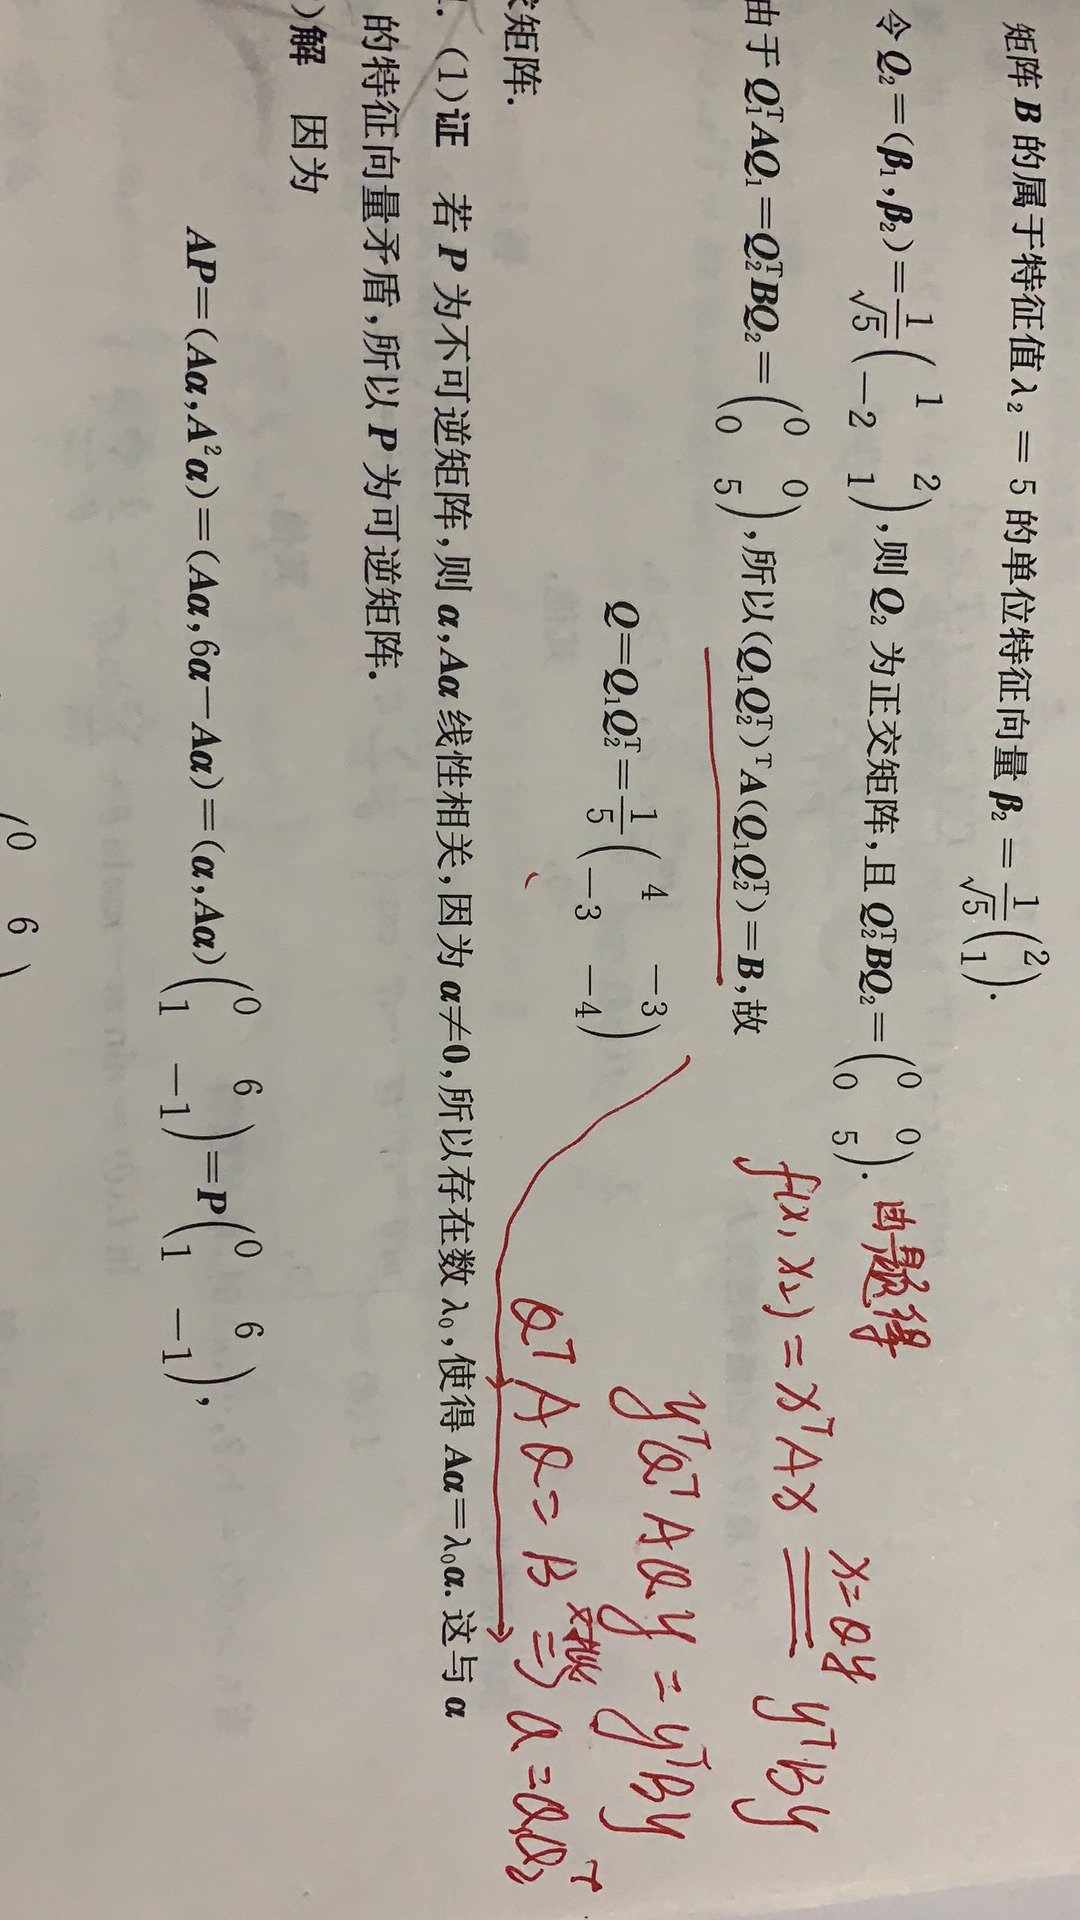 矩阵 B 的属于特征值 λ₂ = 5 的单位特征向量 β₂ = 1/√5 (2 1).
令 Q₂=(β₁,β₂)=1/√5 (1 2 -2 1),则 Q₂ 为正交矩阵,且 Q₂ᵀBQ₂=(0 0 0 5). 由题得
由于 Q₁ᵀAQ₁=Q₂ᵀBQ₂=(0 0 0 5),所以(Q₁Q₂ᵀ)ᵀA(Q₁Q₂ᵀ)=B,故
f(x₁ x₂) = xᵀAx = yᵀBy
x=Qy
Q=Q₁Q₂ᵀ=1/5 (4 -3 -3 -4)
yᵀQᵀAQy = yᵀBy
QᵀAQ = B 对比 ⇒ Q=Q₁Q₂ᵀ
矩阵.
. (1)证 若 P 为不可逆矩阵,则 α,Aα 线性相关,因为 α≠0,所以存在数 λ₀,使得 Aα=λ₀α. 这与 α
的特征向量矛盾,所以 P 为可逆矩阵.
)解 因为
AP=(Aα,A²α)=(Aα,6α-Aα)=(α,Aα)(0 6 1 -1)=P(0 6 1 -1),
(0 6)